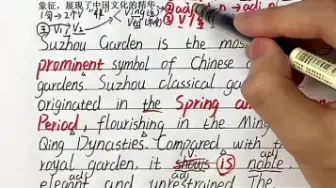 象征，展现了中国文化的精华
Suzhou Garden is the mos
prominent symbol of Chinese c
gardens. Suzhou classical garde
originated in the Spring a
Period, flourishing in the Ming
Qing Dynasties. Compared with t
royal garden, it shows is noble
elegant and unrestrained. The